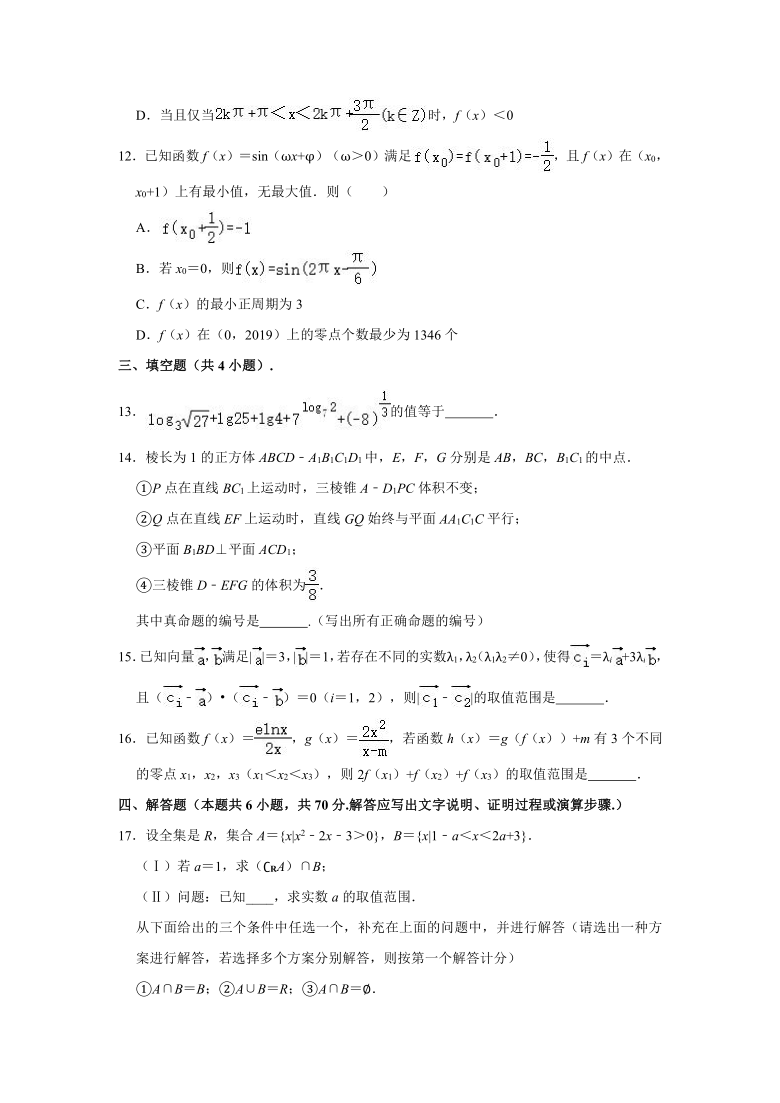 D．当且仅当2kπ+π＜x＜2kπ+3π/2(k∈Z)时，f（x）＜0
12．已知函数 f（x）＝sin（ωx+φ）（ω＞0）满足f(x₀)=f(x₀+1)=-1/2，且 f（x）在（x₀，
x₀+1）上有最小值，无最大值．则（　　）
A．f(x₀+1/2)=-1
B．若 x₀＝0，则f(x)=sin(2πx-π/6)
C．f（x）的最小正周期为 3
D．f（x）在（0，2019）上的零点个数最少为 1346 个
三、填空题（共 4 小题）．
13．log₃√27+lg25+lg4+7^(log₇2)+(-8)^(1/3)的值等于_______．
14．棱长为 1 的正方体 ABCD﹣A₁B₁C₁D₁ 中，E，F，G 分别是 AB，BC，B₁C₁ 的中点．
①P 点在直线 BC₁ 上运动时，三棱锥 A﹣D₁PC 体积不变；
②Q 点在直线 EF 上运动时，直线 GQ 始终与平面 AA₁C₁C 平行；
③平面 B₁BD⊥平面 ACD₁；
④三棱锥 D﹣EFG 的体积为3/8．
其中真命题的编号是_______．（写出所有正确命题的编号）
15．已知向量a→，b→满足|a→|＝3，|b→|＝1，若存在不同的实数λ₁，λ₂（λ₁λ₂≠0），使得cᵢ→＝λᵢa→+3λᵢb→，
且（cᵢ→﹣a→）•（cᵢ→﹣b→）＝0（i＝1，2），则|c₁→﹣c₂→|的取值范围是_______．
16．已知函数 f（x）＝elnx/2x，g（x）＝2x²/(x-m)，若函数 h（x）＝g（f（x））+m 有 3 个不同
的零点 x₁，x₂，x₃（x₁＜x₂＜x₃），则 2f（x₁）+f（x₂）+f（x₃）的取值范围是_______．
四、解答题（本题共 6 小题，共 70 分.解答应写出文字说明、证明过程或演算步骤.）
17．设全集是 R，集合 A＝{x|x²﹣2x﹣3＞0}，B＝{x|1﹣a＜x＜2a+3}．
（Ⅰ）若 a＝1，求（∁RA）∩B；
（Ⅱ）问题：已知____，求实数 a 的取值范围．
从下面给出的三个条件中任选一个，补充在上面的问题中，并进行解答（请选出一种方
案进行解答，若选择多个方案分别解答，则按第一个解答计分）
①A∩B＝B；②A∪B＝R；③A∩B＝∅．